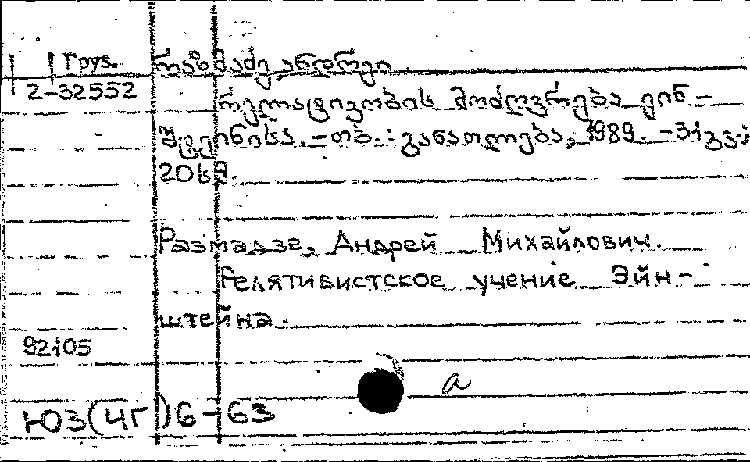 Груз.
რაზმაძე ანდრეი.
2-32552
რელატივობის მოძღვრება ეინ-
შტეინისა. -თბ.: განათლება, 1989. -31გვ.;
20სმ.
Размадзе, Андрей Михайлович.
Релятивистское учение Эйн-
штейна.
92105
а
Ю3(4Г)6-63